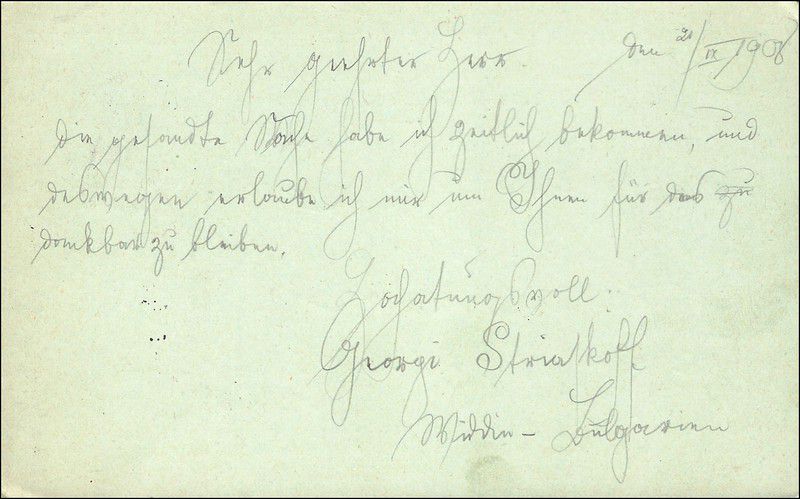 Sehr geehrter Herr. den 21/IX 1908
die gesandte Sache habe ich zeitlich bekommen, und
deswegen erlaube ich mir um Ihnen für das zu
dankbar zu bleiben.
Hochatungsvoll.
Georgi
Widdin – Bulgarien